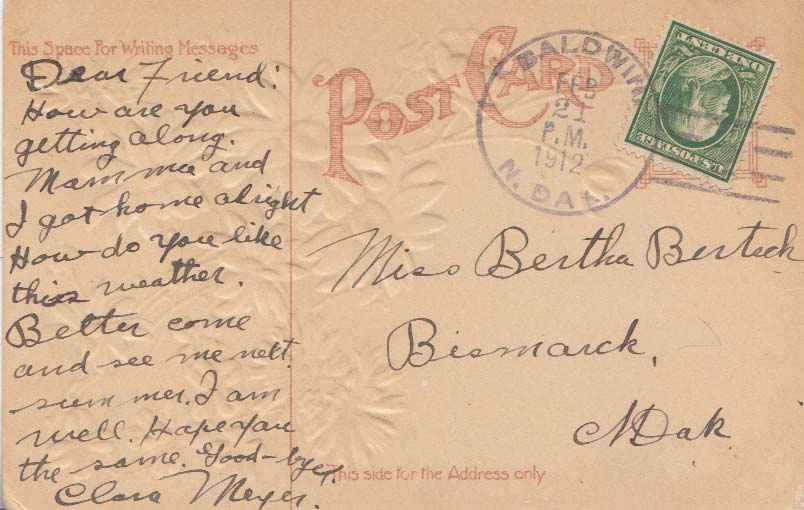 This Space For Writing Messages
POST CARD
BALDWIN
FEB
21
P.M.
1912
N. DAK.
U.S. POSTAGE
ONE CENT
Dear Friend:
How are you
getting along.
Mammie and
I got home alright
How do you like
this weather.
Better come
and see me next
summer. I am
well. Hope you
the same. Good-bye,
Clara Meyer.
Miss Bertha Bertsch
Bismarck,
N Dak
This side for the Address only